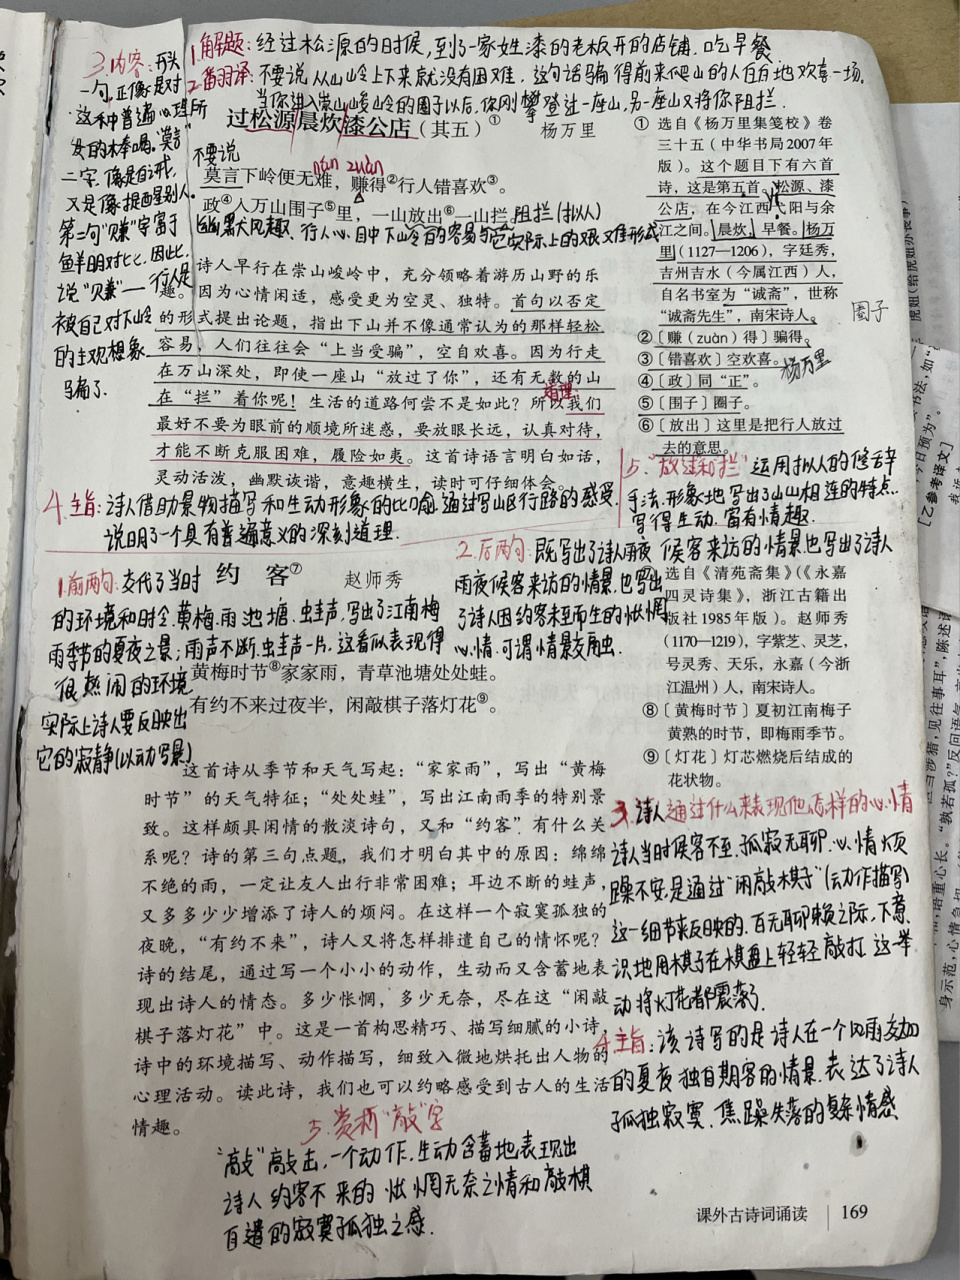 1.解题：经过松源的时候，到了一家姓漆的老板开的店铺.吃早餐
2.翻译：不要说从山岭上下来就没有困难，这句话骗得前来爬山的人白白地欢喜一场.
当你进入崇山峻岭的圈子以后，你刚攀登过一座山，另一座山又将你阻拦.
3.内容：开头
一句，正像是对
这种普遍心理所
发的棒喝。"莫言"
二字，像是自戒，
又是像提醒别人.
第二句"赚"字富于
鲜明对比，因此，
说"赚"——行人是
被自己对下山岭
的主观想象
骗了.
过松源晨炊漆公店（其五）①
杨万里
不要说
nán zuàn
莫言下岭便无难，赚得②行人错喜欢③。
政④入万山围子⑤里，一山放出⑥一山拦。
阻拦（拟人）
幽默风趣、行人心目中下山岭的容易与它实际上的艰难形式
诗人早行在崇山峻岭中，充分领略着游历山野的乐
趣。因为心情闲适，感受更为空灵、独特。首句以否定
的形式提出论题，指出下山并不像通常认为的那样轻松
容易，人们往往会"上当受骗"，空自欢喜。因为行走
在万山深处，即使一座山"放过了你"，还有无数的山
在"拦"着你呢！生活的道路何尝不是如此？所以我们
道理：
最好不要为眼前的顺境所迷惑，要放眼长远，认真对待，
才能不断克服困难，履险如夷。这首诗语言明白如话，
灵动活泼，幽默诙谐，意趣横生，读时可仔细体会。
① 选自《杨万里集笺校》卷
三十五（中华书局2007年
版）。这个题目下有六首
诗，这是第五首。松源、漆
公店，在今江西弋阳与余
江之间。晨炊，早餐。杨万
里（1127—1206），字廷秀，
吉州吉水（今属江西）人，
自名书室为"诚斋"，世称
"诚斋先生"，南宋诗人。
②〔赚（zuàn）得〕骗得。
③〔错喜欢〕空欢喜。
④〔政〕同"正"。
⑤〔围子〕圈子。
⑥〔放出〕这里是把行人放过
去的意思。
圈子
杨万里
4.主旨：诗人借助景物描写和生动形象的比喻，通过写山区行路的感受，
说明了一个具有普遍意义的深刻道理.
5."放过"和"拦"运用拟人的修辞
手法，形象地写出了山山相连的特点.
写得生动.富有情趣.
约 客⑦
赵师秀
1.前两句：交代了当时
的环境和时令.黄梅.雨.池塘、虫蛙声，写出了江南梅
雨季节的夏夜之景；雨声不断，虫蛙声一片。这看似表现得
很热闹的环境
实际上诗人要反映出
它的寂静（以动写景）
2.后两句：既写出了诗人雨夜候客来访的情景也写出了诗人
雨夜候客来访的情景，也写出
了诗人因约客未至而生的怅惘
心情.可谓情景交融.
黄梅时节⑧家家雨，青草池塘处处蛙。
有约不来过夜半，闲敲棋子落灯花⑨。
⑦ 选自《清苑斋集》（《永嘉
四灵诗集》，浙江古籍出
版社1985年版）。赵师秀
（1170—1219），字紫芝、灵芝，
号灵秀、天乐，永嘉（今浙
江温州）人，南宋诗人。
⑧〔黄梅时节〕夏初江南梅子
黄熟的时节，即梅雨季节。
⑨〔灯花〕灯芯燃烧后结成的
花状物。
这首诗从季节和天气写起："家家雨"，写出"黄梅
时节"的天气特征；"处处蛙"，写出江南雨季的特别景
致。这样颇具闲情的散淡诗句，又和"约客"有什么关
系呢？诗的第三句点题，我们才明白其中的原因：绵绵
不绝的雨，一定让友人出行非常困难；耳边不断的蛙声，
又多多少少增添了诗人的烦闷。在这样一个寂寞孤独的
夜晚，"有约不来"，诗人又将怎样排遣自己的情怀呢？
诗的结尾，通过写一个小小的动作，生动而又含蓄地表
现出诗人的情态。多少怅惘，多少无奈，尽在这"闲敲
棋子落灯花"中。这是一首构思精巧、描写细腻的小诗，
诗中的环境描写、动作描写，细致入微地烘托出人物的
心理活动。读此诗，我们也可以约略感受到古人的生活
情趣。
3.诗人通过什么来表现他怎样的心情
诗人当时候客不至.孤寂无聊.心情烦
躁不安.是通过"闲敲棋子"（动作描写）
这一细节来反映的.百无聊赖之际，下意
识地用棋子在棋盘上轻轻敲打.这一举
动将灯花都震落了.
4.主旨：该诗写的是诗人在一个风雨交加
的夏夜独自期客的情景.表达了诗人
孤独寂寞.焦躁失落的复杂情感
5.赏析"敲"字
"敲"敲击，一个动作.生动含蓄地表现出
诗人约客不来的怅惘无奈之情和敲棋
自遣的寂寞孤独之感.
课外古诗词诵读 169
[乙参考译文]